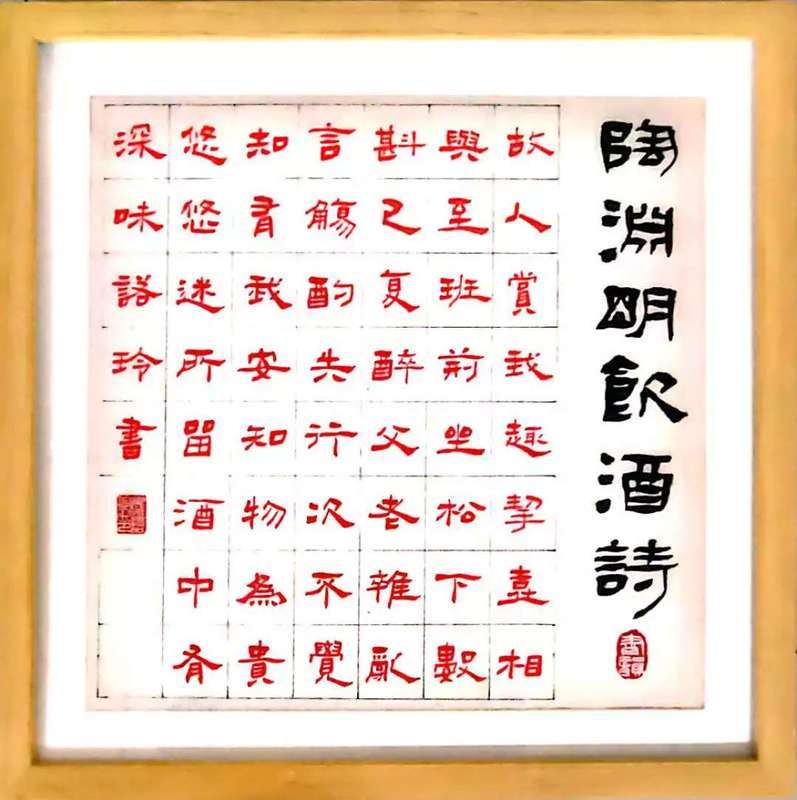 陶淵明飲酒詩
故人賞我趣挈壺相
與至班荊坐松下數
斟已复醉父老雜亂
言觴酌失行次不覺
知有我安知物為貴
悠悠迷所留酒中有
深味詻玲書